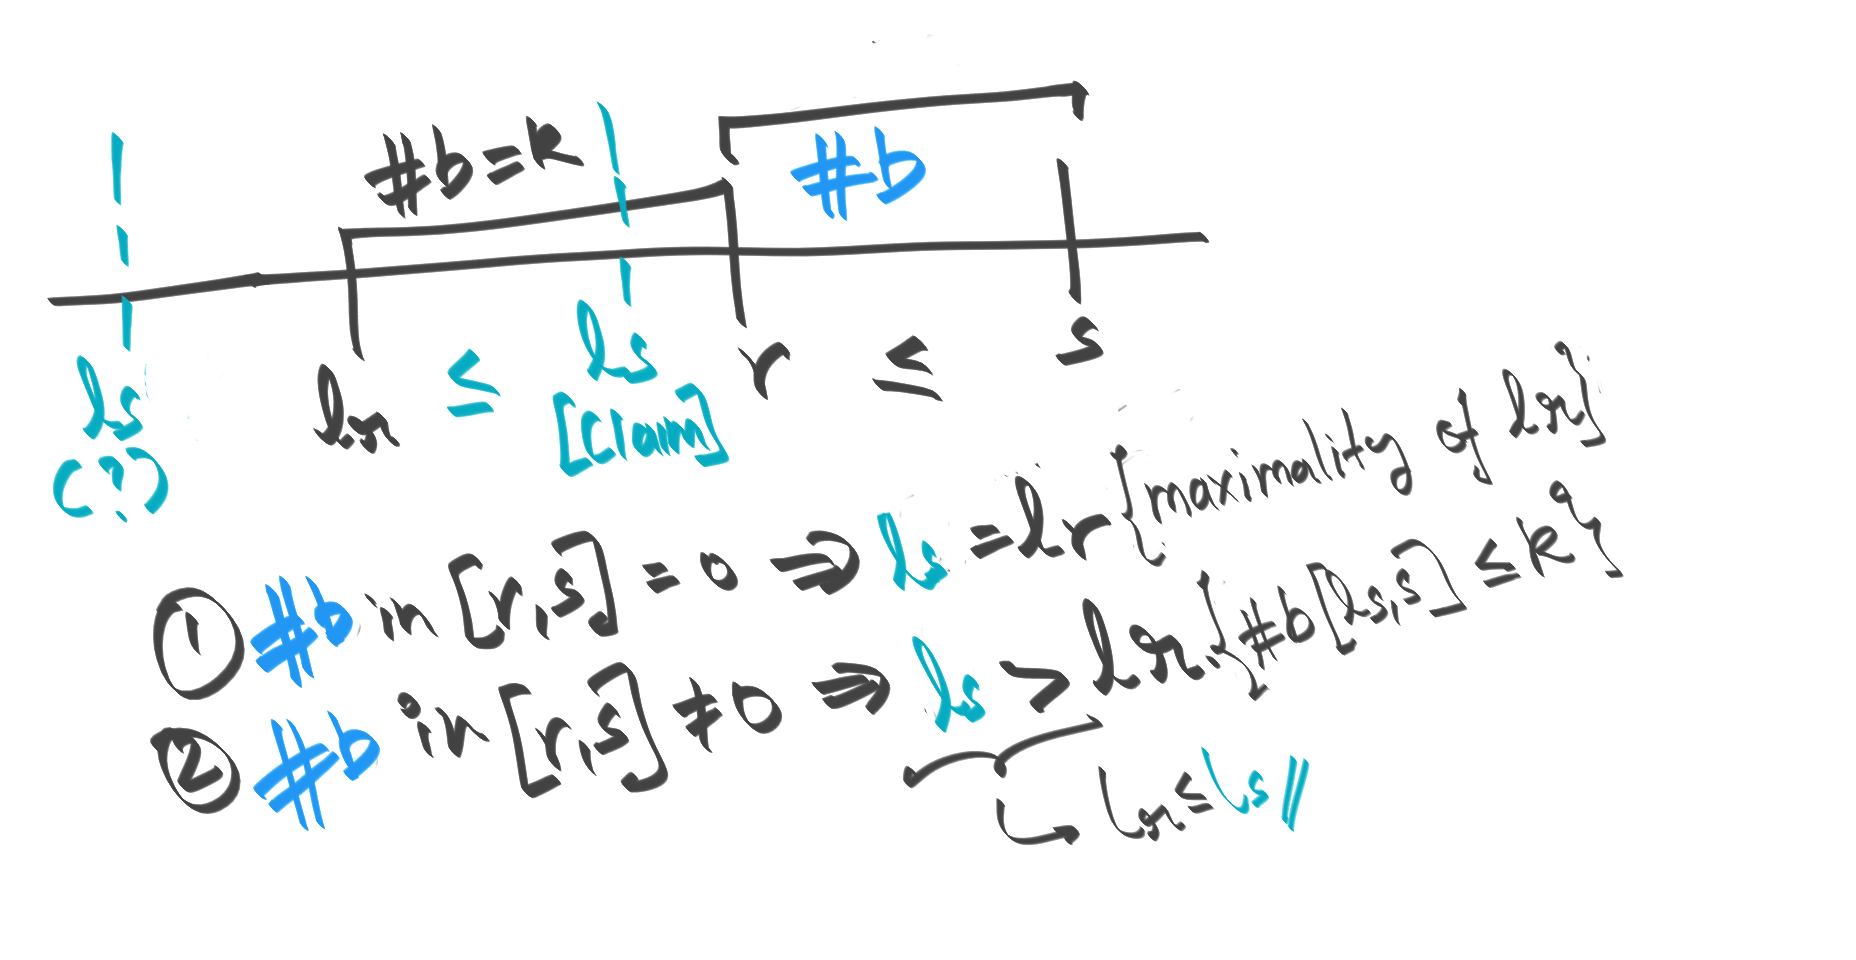 #b=k
#b
ls
(?)
lr ≤ ls r ≤ s
[Claim]
① #b in [r,s] = 0 ⇒ ls = lr {maximality of lr}
② #b in [r,s] ≠ 0 ⇒ ls > lr. {#b[ls,s] ≤ k}
lr ≤ ls //